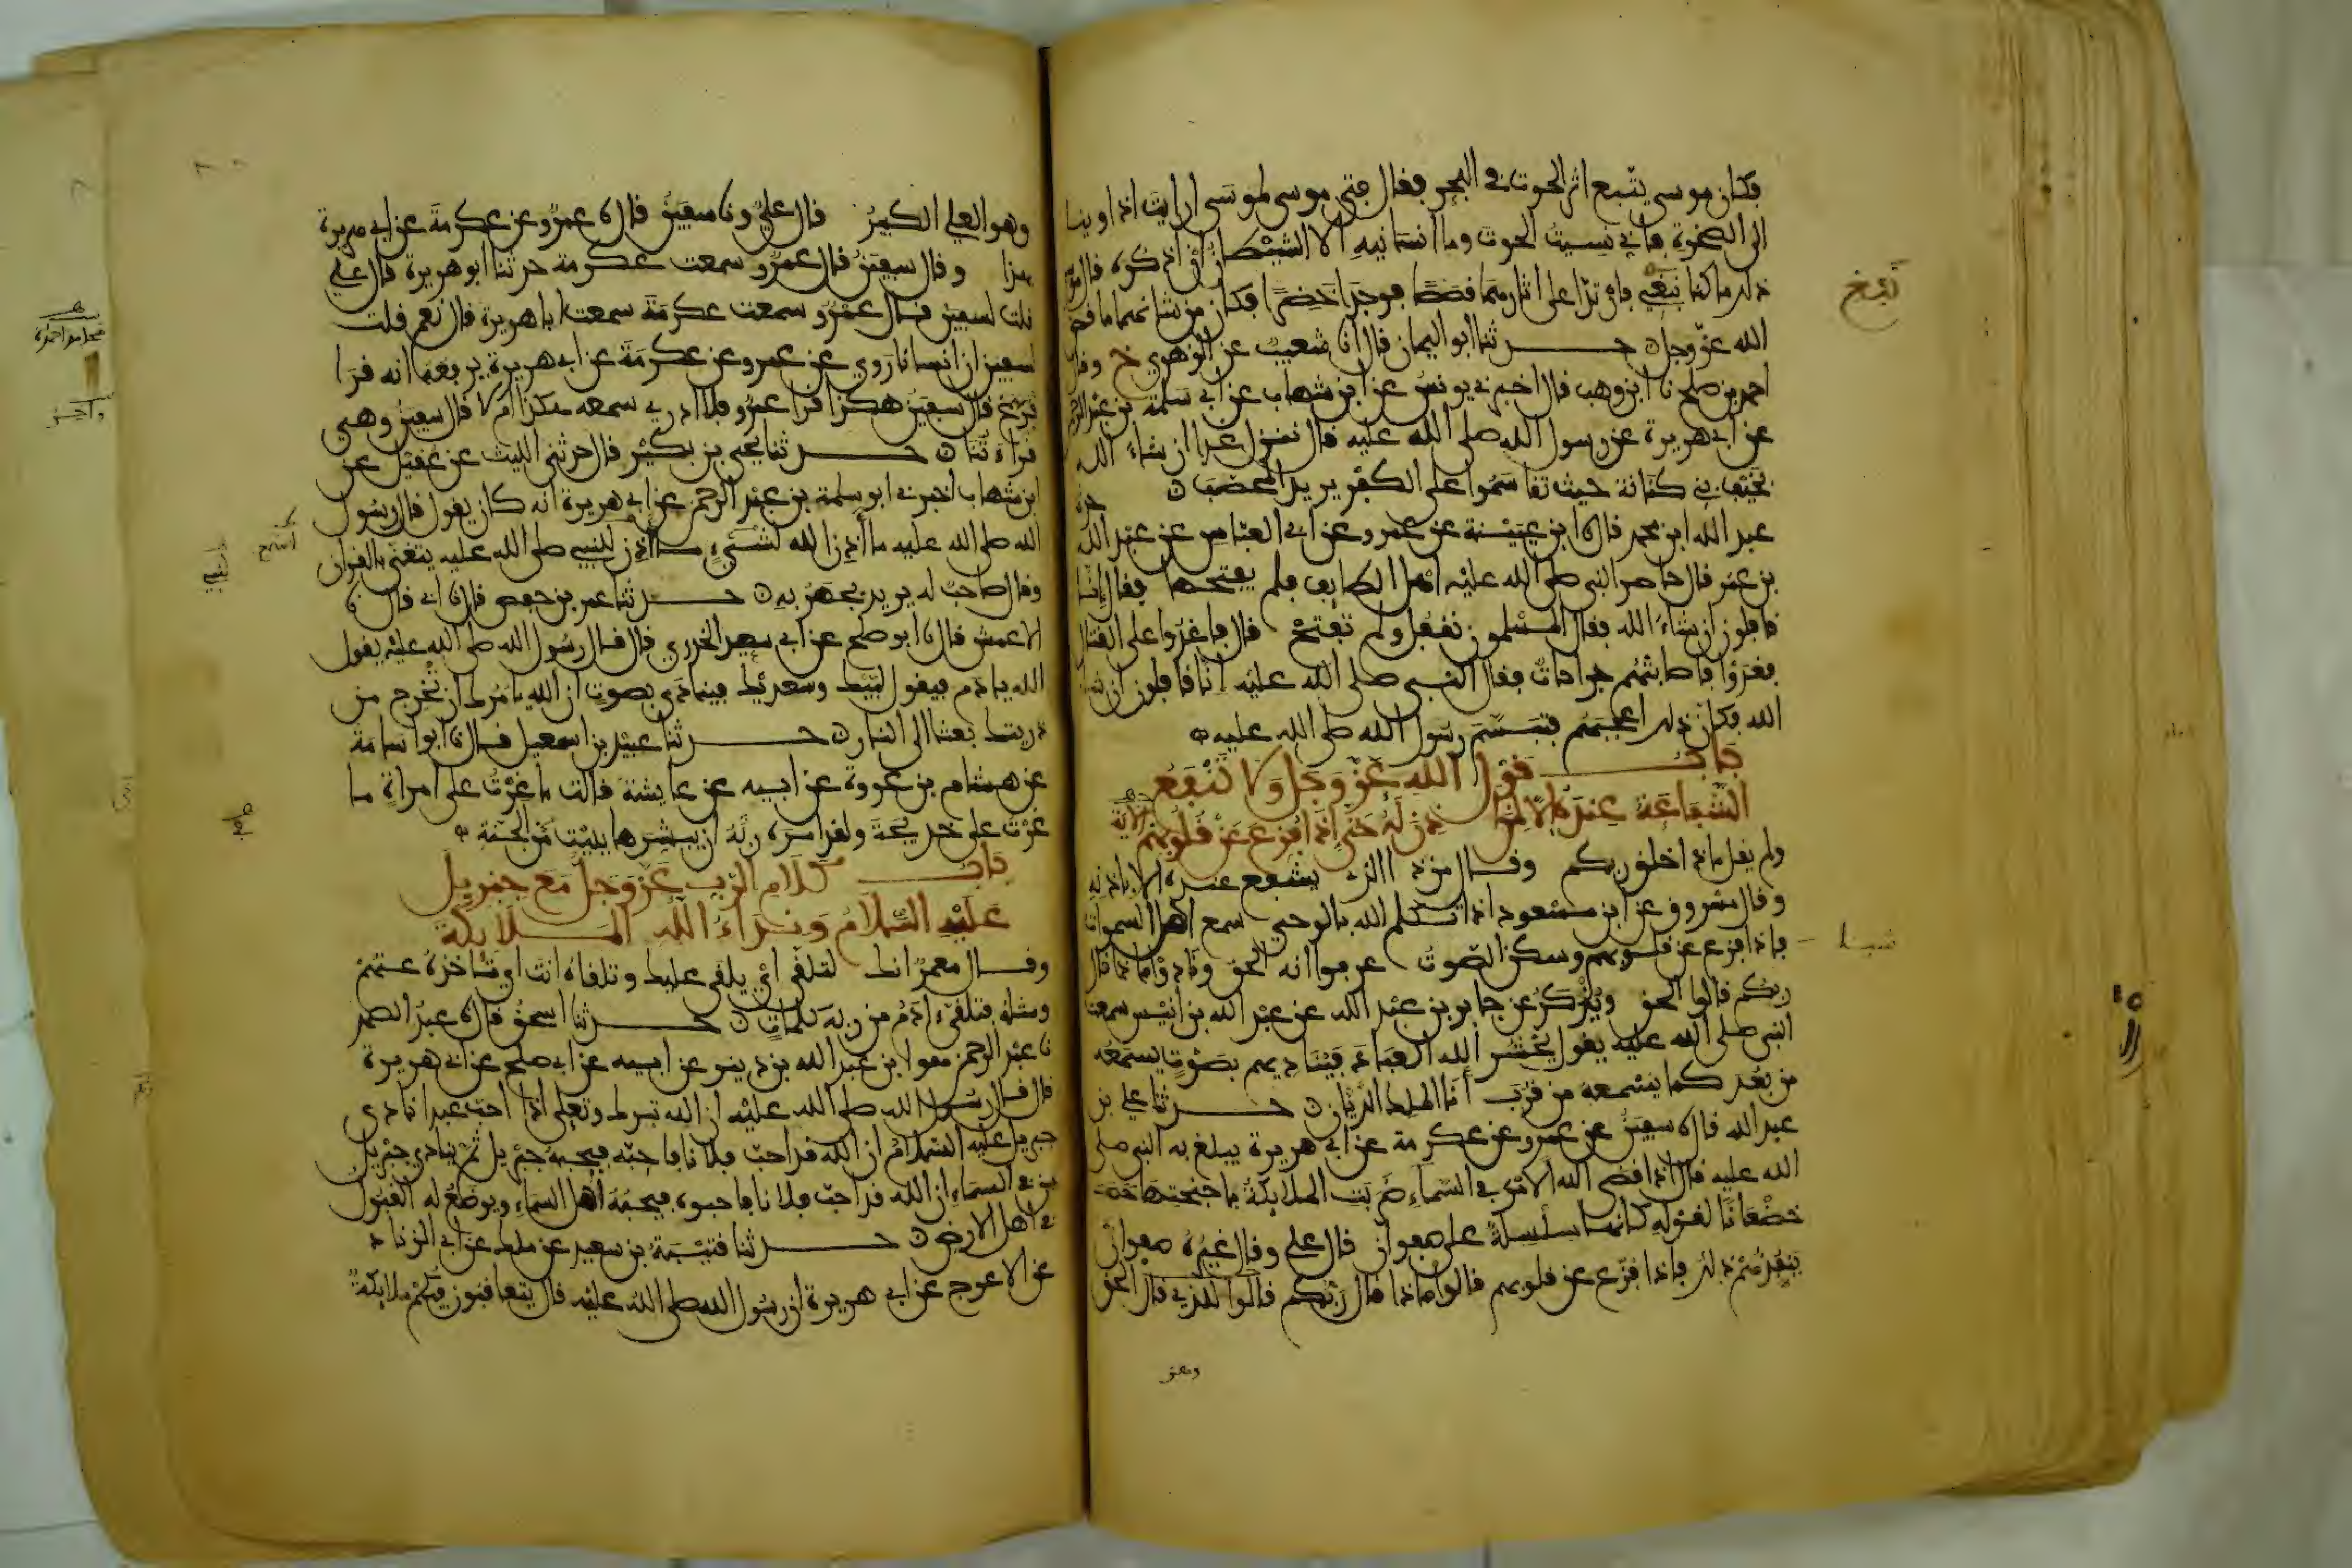 فكان موسى يتبع اثر الحوت في البحر فقال فتى موسى لموسى ارايت اذ اوينا
الى الصخرة فاني نسيت الحوت وما انسانيه الا الشيطان ان اذكره قال موسى
ذلك ما كنا نبغي فارتدا على اثارهما قصصا فوجدا خضرا فكان من شانهما ما قص
الله عز وجل حدثنا ابو اليمان قال انا شعيب عن الزهري ح وقال
احمد بن صلح نا ابن وهب قال اخبرني يونس عن ابن شهاب عن ابي سلمة بن عبد الرحمن
عن ابي هريرة عن رسول الله صلى الله عليه قال ننزل غدا ان شاء الله
بخيف بني كنانة حيث تقاسموا على الكفر يريد المحصب حدثنا
عبد الله ابن محمد قال نا ابن عيينة عن عمرو عن ابي العباس عن عبد الله
بن عمر قال حاصر النبي صلى الله عليه اهل الطايف فلم يفتحها فقال انا
قافلون ان شاء الله فقال المسلمون نقفل ولم تفتح قال فاغدوا على القتال
فغدوا فاصابتهم جراحات فقال النبي صلى الله عليه انا قافلون ان شاء
الله فكان ذلك اعجبهم فتبسم رسول الله صلى الله عليه
باب قول الله عز وجل ولا تنفع
الشفاعة عنده الا لمن اذن له حتى اذا فزع عن قلوبهم الاية
ولم يقل ماذا خلق ربكم وقال من ذا الذي يشفع عنده الا باذنه
وقال مسروق عن ابن مسعود اذا تكلم الله بالوحي سمع اهل السموات
فاذا فزع عن قلوبهم وسكن الصوت عرفوا انه الحق ونادوا ماذا قال
ربكم قالوا الحق ويذكر عن جابر بن عبد الله عن عبد الله بن انيس سمعت
النبي صلى الله عليه يقول يحشر الله العباد فيناديهم بصوت يسمعه
من بعد كما يسمعه من قرب انا الملك الديان حدثنا علي بن
عبد الله قال نا سفين عن عمرو عن عكرمة عن ابي هريرة يبلغ به النبي صلى
الله عليه قال اذا قضى الله الامر في السماء ضربت الملايكة باجنحتها
خضعانا لقوله كانها سلسلة على صفوان قال علي وقال غيره صفوان
ينفذهم ذلك فاذا فزع عن قلوبهم قالوا ماذا قال ربكم قالوا للذي قال الحق
وهو
وهو العلي الكبير قال علي ونا سفين قال نا عمرو عن عكرمة عن ابي هريرة
بهذا وقال سفين قال عمرو سمعت عكرمة حدثنا ابو هريرة قال علي
قلت لسفين قال عمرو سمعت عكرمة سمعت ابا هريرة قال نعم قلت
لسفين ان انسانا روي عن عمرو عن عكرمة عن ابي هريرة يرفعه انه قرا
فرغ قال سفين هكذا قرا عمرو فلا ادري سمعه هكذا ام لا قال سفين وهي
قراءتنا حدثنا يحيى بن بكير قال حدثني الليث عن عقيل عن
ابن شهاب اخبرني ابو سلمة بن عبد الرحمن عن ابي هريرة انه كان يقول قال رسول
الله صلى الله عليه ما اذن الله لشيء ما اذن للنبي صلى الله عليه يتغنى بالقران
وقال صاحب له يريد يجهر به حدثنا عمر بن حفص قال نا ابي قال نا
الاعمش قال نا ابو صلح عن ابي سعيد الخدري قال قال رسول الله صلى الله عليه يقول
الله يا ادم فيقول لبيك وسعديك فينادى بصوت ان الله يامرك ان تخرج من
ذريتك بعثا الى النار حدثنا عبيد بن اسمعيل قال نا ابو اسامة
عن هشام بن عروة عن ابيه عن عايشة قالت ما غرت على امراة ما
غرت على خديجة ولقد امره ربه ان يبشرها ببيت من الجنة
باب كلام الرب عز وجل مع جبريل
عليه السلام ونداء الله الملايكة
وقال معمر انك لتلقى اي يلقى عليك وتلقاه انت اي تاخذه عنهم
ومثله فتلقى ادم من ربه كلمات حدثنا اسحق قال نا عبد الصمد
نا عبد الرحمن هو ابن عبد الله بن دينر عن ابيه عن ابي صلح عن ابي هريرة
قال قال رسول الله صلى الله عليه ان الله تبرك وتعلى اذا احب عبدا نادى
جبريل عليه السلام ان الله قد احب فلانا فاحبه فيحبه جبريل ثم ينادي جبريل
في السماء ان الله قد احب فلانا فاحبوه فيحبه اهل السماء ويوضع له القبول
في اهل الارض حدثنا قتيبة بن سعيد عن ملك عن ابي الزناد
عن الاعرج عن ابي هريرة ان رسول الله صلى الله عليه قال يتعاقبون فيكم ملايكة